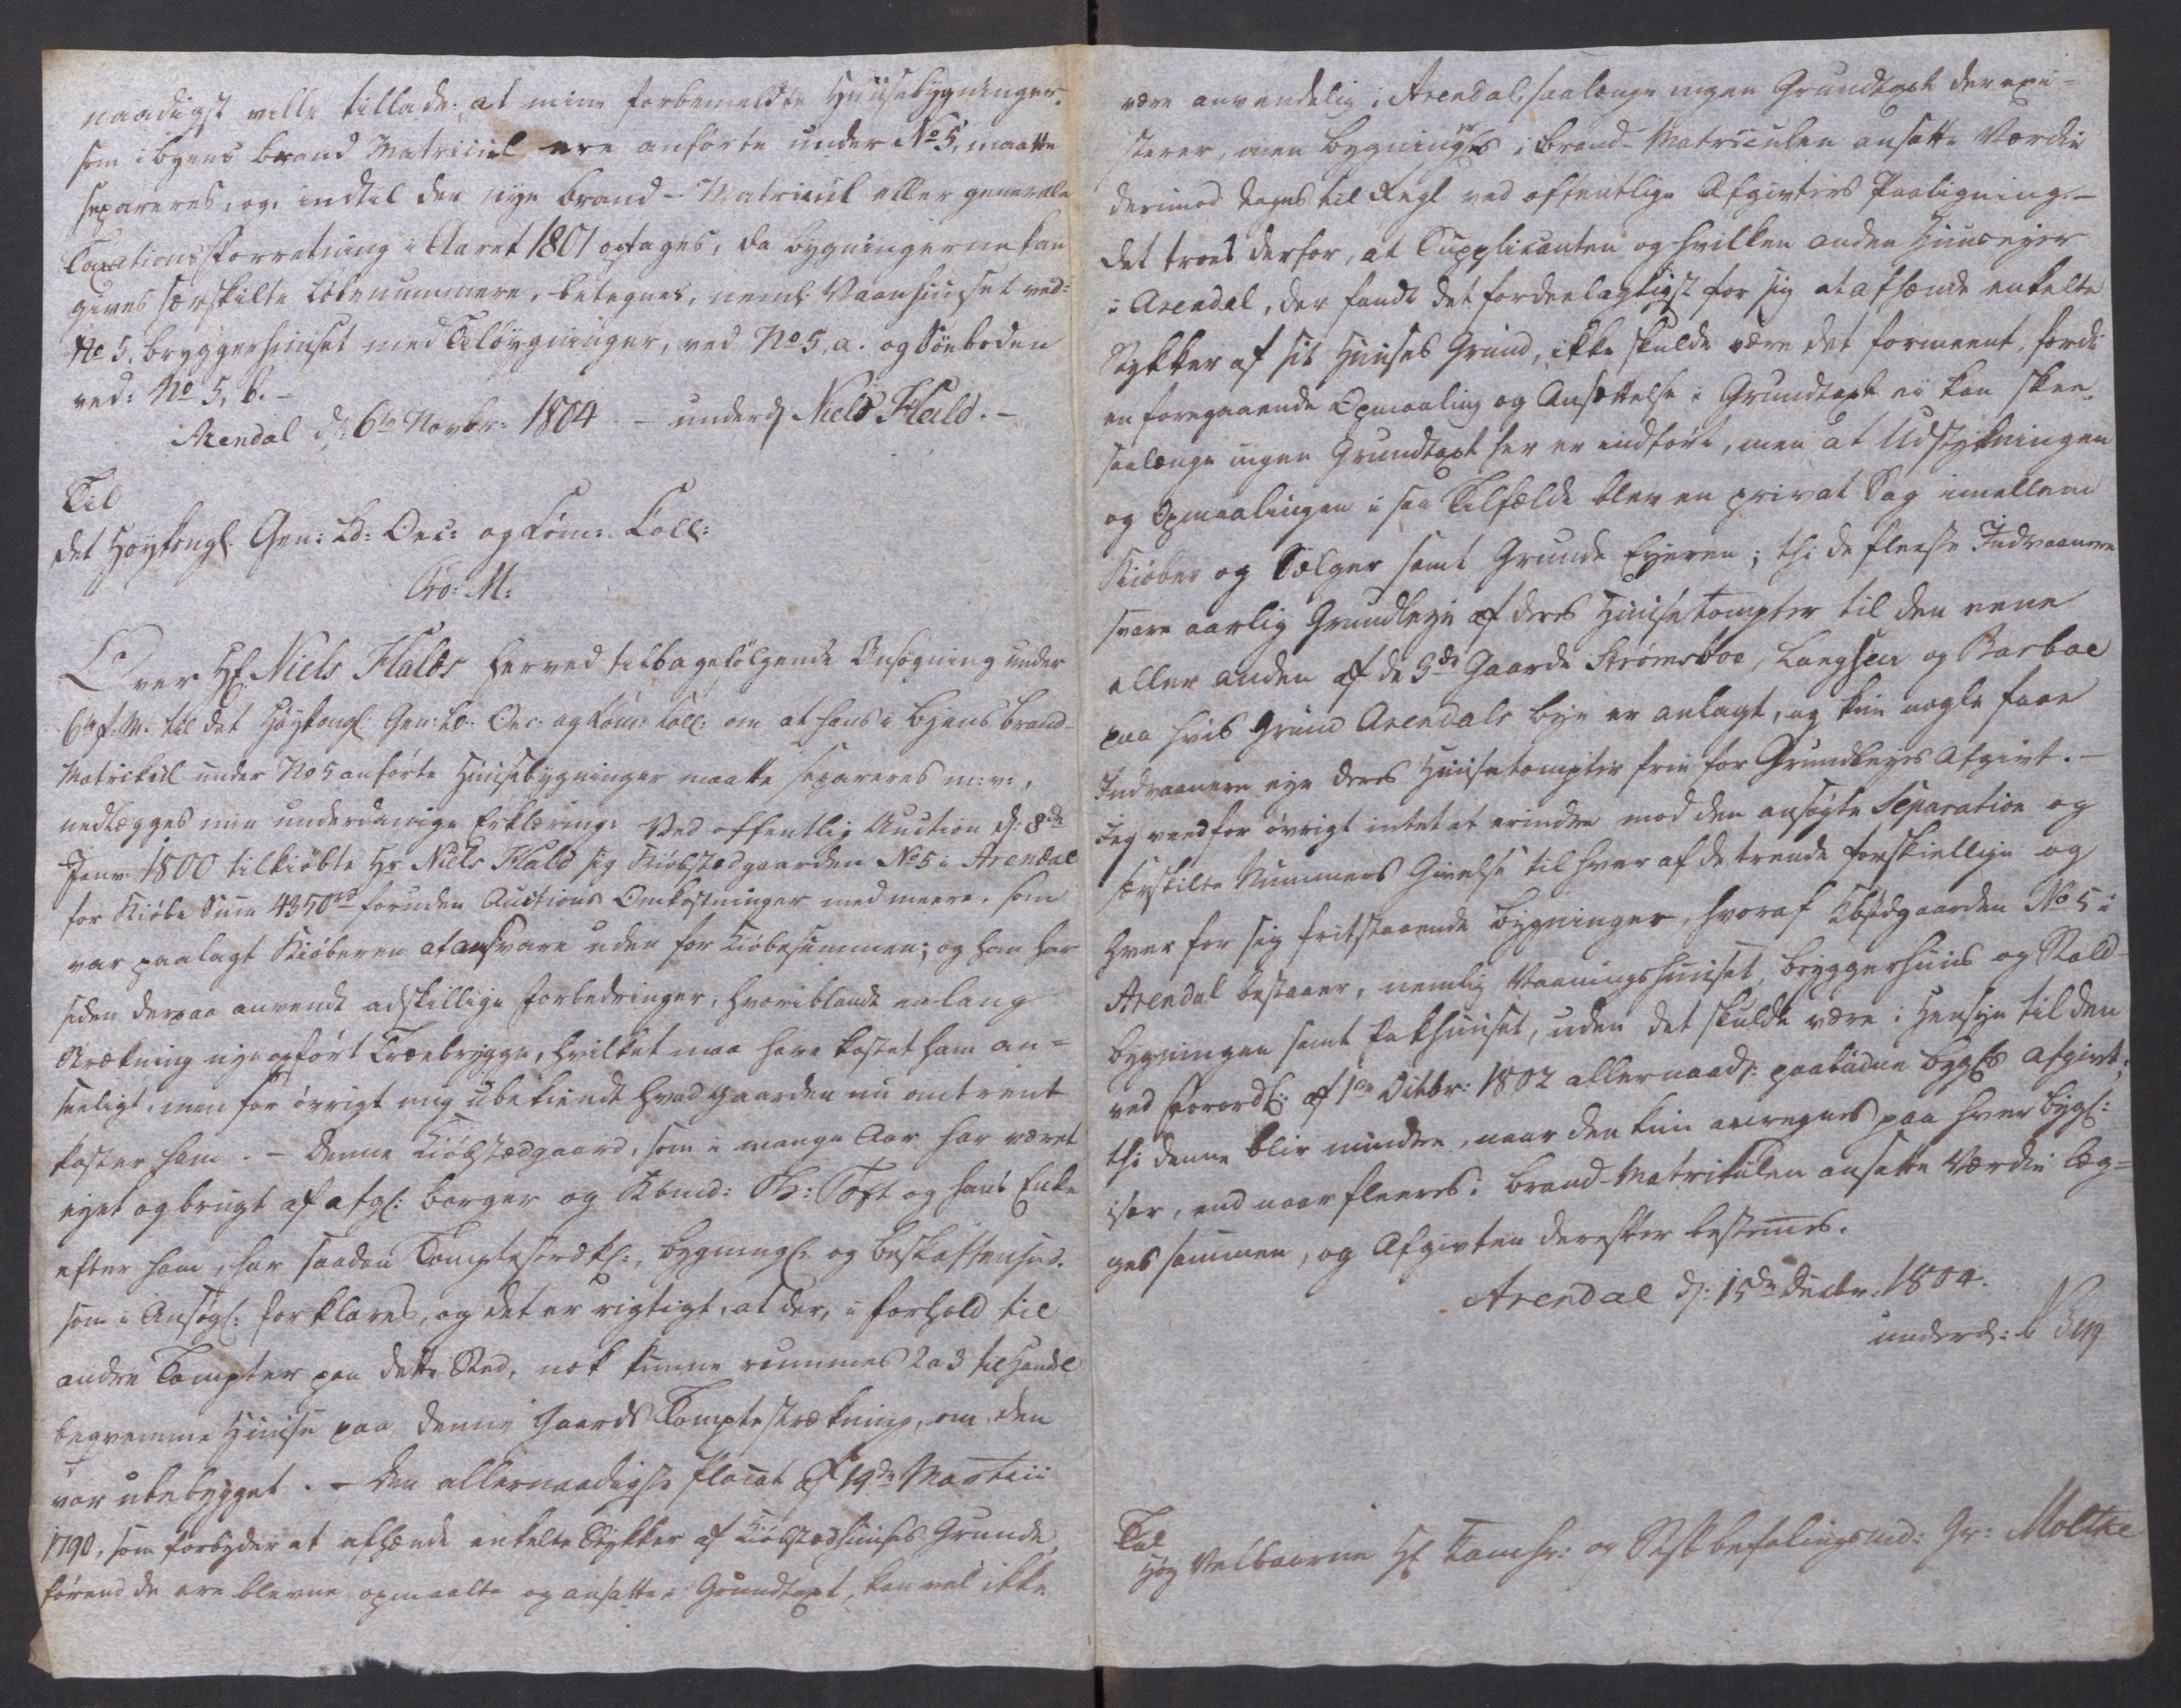 naadigst ville tillade: at mine forbemeldte Huusebygninger,
som i byens brand Matricul ere anførte under No 5, maatte
separeres, og, indtil den nye brand-Matricul eller generale
Taxations Forretning i Aaret 1807 optages, da bygningerne kan
gives særskilte Løbenummere, betegnes, neml: Vaanhuuset ved:
No 5, bryggerhuuset med Tilbygninger, ved No 5, a. og Søeboden
ved: No 5, b. -
Arendal d: 6te Novbr: 1804 - underd Niels Hald. -
Til
det Høykongl. Gen: Ld: Oec: og Com: Coll:
Pro: M:
Over Hr. Niels Halds herved tilbagefølgende Ansøgning under
6te f: M. til det Høykongl: Gen: Ld: Oec: og Com: Coll: om at hans i byens brand-
Matricul under No 5 anførte Huusebygninger maatte separeres m: v:,
nedlægges min underdanige Erklæring: Ved offentlig Auction d: 8de
Janv: 1800 tilkiøbte Hr Niels Hald sig Kiøbstædgaarden No 5 i Arendal
for Kiøbe Sum 4350 rd foruden Auctions Omkostninger med meere, som
var paalagt Kiøberen at ansvare uden for Kiøbesummen; og han har
siden derpaa anvendt adskillige forbedringer, hvoriblandt en lang
Strækning nye opført Træebrygge, hvilket maa have kostet ham an-
seeligt, men for øvrigt mig ubekiendt hvad gaarden nu omtrent
koster ham. - Denne Kiøbstædgaard, som i mange Aar har været
eyet og brugt af afg: borger og Kbmd: Th: Toft og hans Enke
efter ham, har saadan Tomptestrækn:, bygninger og beskaffenhed,
som i Ansøgn: forklares, og det er rigtigt, at der, i forhold til
andre Tompter paa dette Sted, nok kunne rummes 2 a 3 til Handel
beqvemme Huuse paa denne Gaards Tomptestrækning, om den
var ubebygget. - Den allernaadigste Placat af 19de Martii
1790, som forbyder at afhænde enkelte Stykker af Kiøbstædhuuses Grunde,
førend de ere blevne opmaalte og ansatte i Grundtaxt, kan vel ikke
være anvendelig i Arendal, saalænge ingen Grundtaxt der exi-
sterer, men bygningers i brand-Matriculen ansatte Værdie
derimod tages til Regl ved offentlige Afgivters Paaligning. -
Det troes derfor, at Supplicanten og hvilken anden Huuseyer
i Arendal, der fandt det fordeelagtigst for sig at afhænde enkelte
Stykker af sit Huuses Grund, ikke skulde være det formeent, fordi
en foregaaende Opmaaling og Ansættelse i Grundtaxt ei kan skee,
saalænge ingen Grundtaxt her er indført, men at Udstykningen
og Opmaalingen i saa Tilfælde blev en privat Sag imellem
Kiøber og Sælger samt Grunde Eyeren; thi de fleeste Indvaanere
svare aarlig Grundleye af deres Huusetompter til den eene
eller anden af de 3de Gaarde Strømsboe, Langsæe og Barboe
paa hvis Grund Arendals bye er anlagt, og kun nogle faae
Indvaanere eye deres Huusetompter frie for Grundleyes Afgivt. -
Jeg veed for øvrigt intet at erindre mod den ansøgte Separation og
særskilte Nummers Givelse til hver af de trende forskiellige og
hver for sig fritstaaende bygninger, hvoraf Kbstdgaarden No 5 i
Arendal bestaaer, nemlig Vaaningshuuset, bryggerhuus og Stald-
bygningen samt Pakhuuset, uden det skulde være i Hensyn til den
ved Forordn: af 1ste Octbr: 1802 allernaad: paabudne bygn:s Afgivt;
thi denne blir mindre, naar den kun anregnes paa hver bygn:
især, end naar fleeres i brand-Matriculen ansatte Værdie læg-
ges sammen, og Afgivten derefter bestemmes.
Arendal d: 15de Decbr: 1804.
underd:
Til
Høy Velbaarne Hr Kamhr: og Stiftbefalingsmd: Gr: Moltke